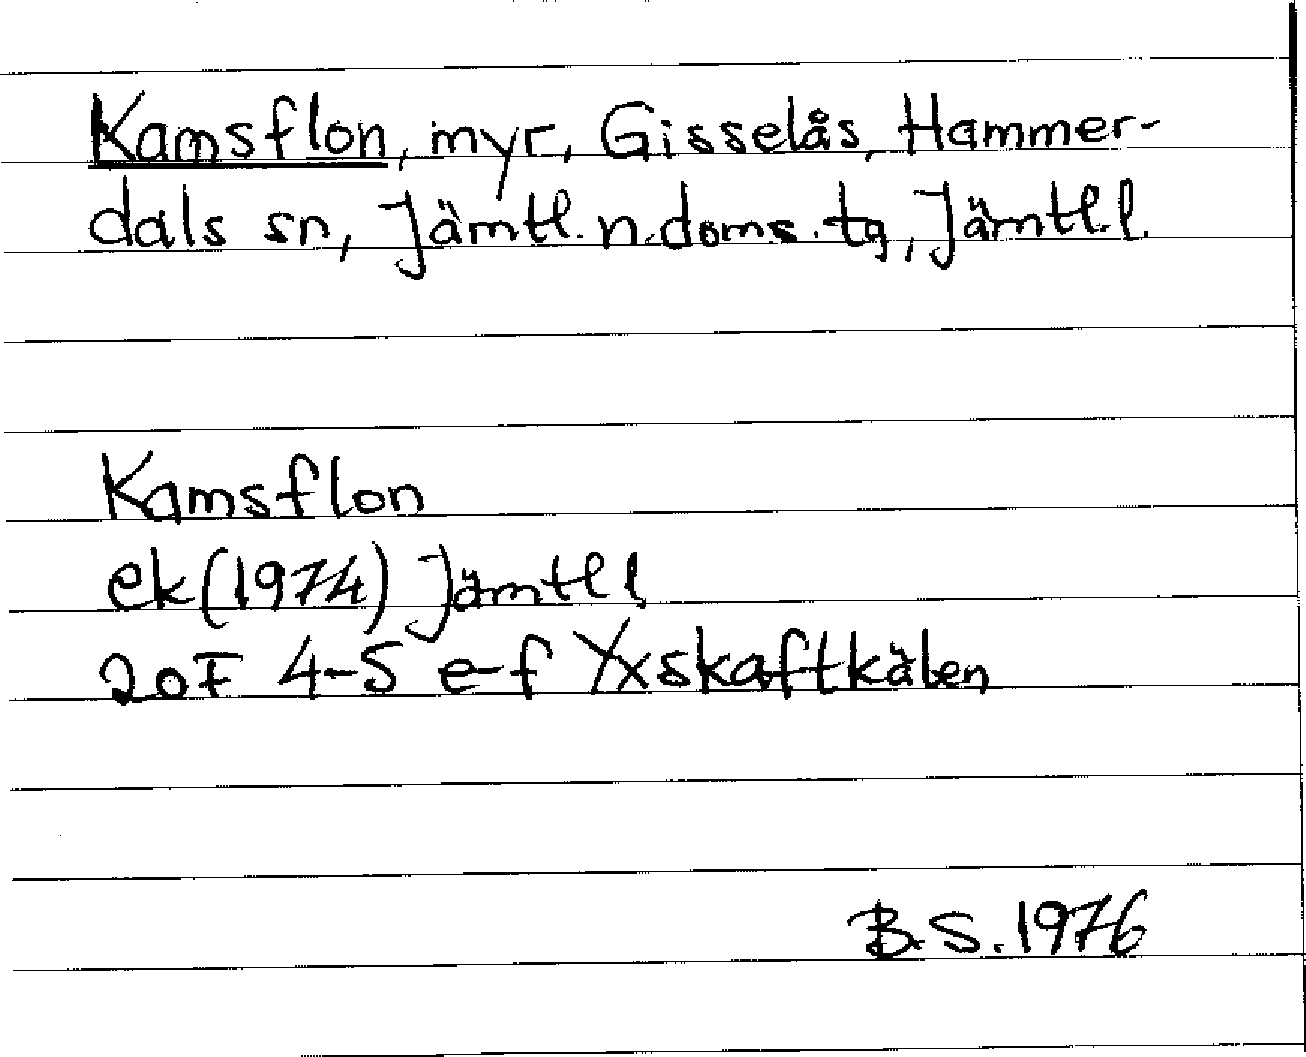 Kamsflon, myr, Gisselås, Hammer-
dals sn, Jämtl. n. doms. tg, Jämtl. l.
Kamsflon
ek (1974) Jämtl l
20F 4-5 e-f Yxskaftkälen
B.S. 1976